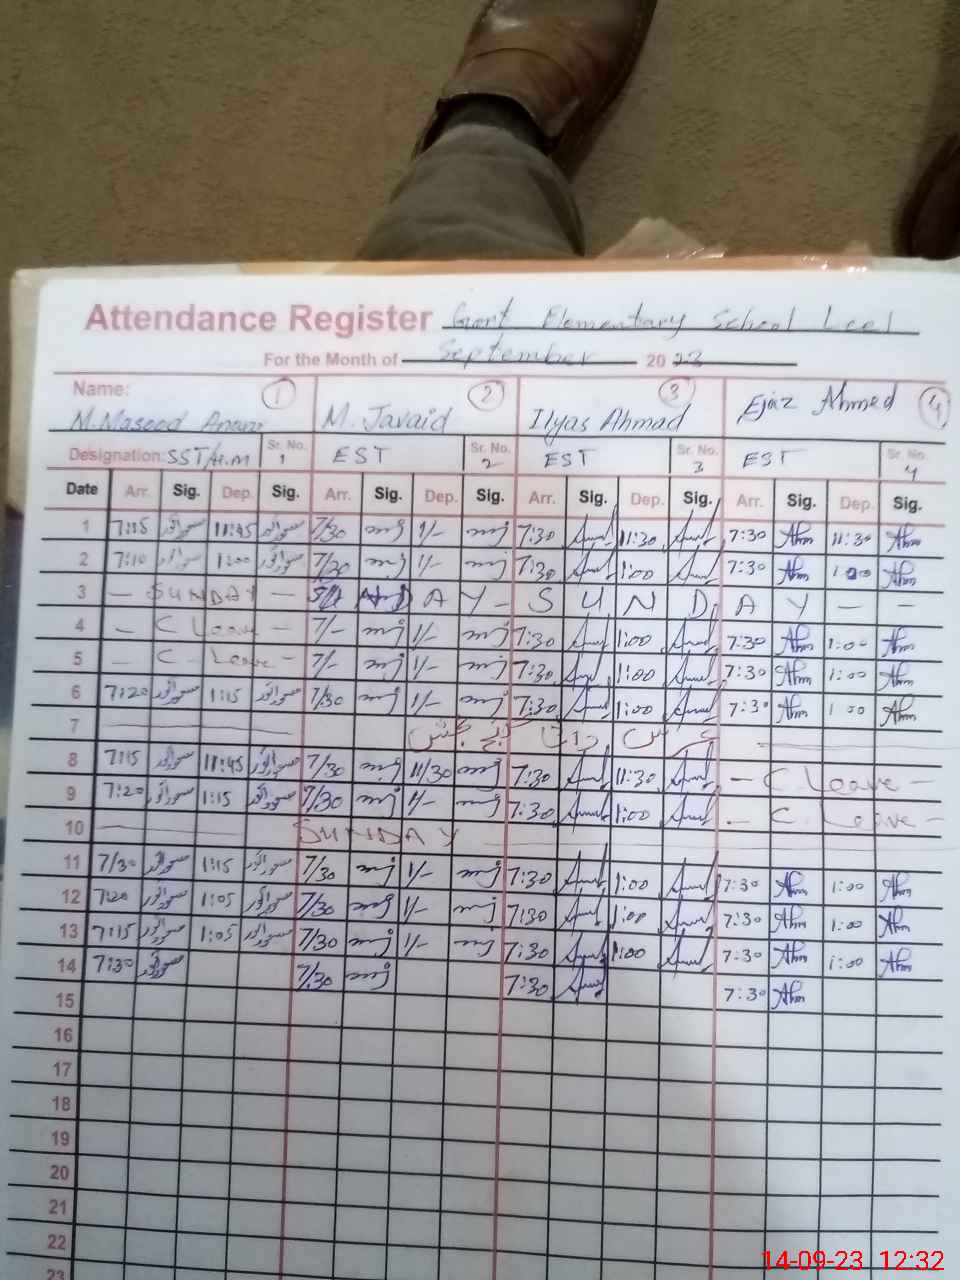 Attendance Register Govt Elementary School Leel
For the Month of September 20 23
Name: 1 2 3 4
M. Masood M. Javaid Ilyas Ahmad Ejaz Ahmed
Designation: SST/H.M Sr. No. 1 EST Sr. No. 2 EST Sr. No. 3 EST Sr. No. 4
Date Arr. Sig. Dep. Sig. Arr. Sig. Dep. Sig. Arr. Sig. Dep. Sig. Arr. Sig. Dep. Sig.
1 7:15 11:45 7/30 1/- 7:30 11:30 7:30 11:30
2 7:10 1:00 7/30 1/- 7:30 1:00 7:30 1:00
3 - SUNDAY - DAY - SUNDAY - -
4 - C Leave - 7/- 1/- 7:30 1:00 7:30 1:00
5 - C - Leave - 7/- 1/- 7:30 1:00 7:30 1:00
6 7:20 1:15 7/30 1/- 7:30 1:00 7:30 1:00
7 عرس داتا گنج بخش
8 7:15 11:45 7/30 11/30 7:30 11:30 - C. Leave -
9 7:20 1:15 7/30 1/- 7:30 1:00 - C. Leave -
10 SUNDAY
11 7/30 1:15 7/30 1/- 7:30 1:00 7:30 1:00
12 7:20 1:05 7/30 1/- 7:30 1:00 7:30 1:00
13 7:15 1:05 7/30 1/- 7:30 1:00 7:30 1:00
14 7:30 7/30 7:30 7:30
15
16
17
18
19
20
21
22
23
14-09-23 12:32